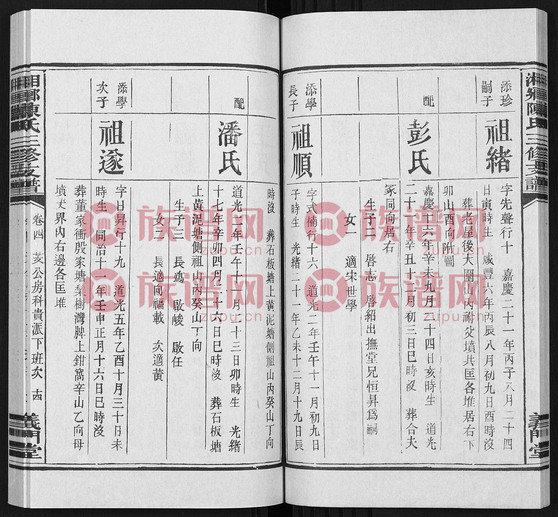 湘鄉陳氏三修支譜
義門堂
添珍嗣子
祖緒
字先聲行十 嘉慶二十一年丙子八月二十四
日寅時生 咸豐六年丙辰八月初九日酉時沒
葬老屋後大園山內祔父墳共囗各堆居右
卯山酉向附碣
配
彭氏
嘉慶十六年辛未九月二十四日亥時生 道光
二十一年辛丑十月初三日巳時沒 葬合夫
冢同向居右
生子二 啓志 啓紹出撫堂兄恒昇爲嗣
女一 適宋世學
添學長子
祖順
字式備行十六 道光二年壬午十一月初九日
子時生 光緒二十一年乙未十二月十九日辰
時沒 葬石板塘上黃泥塘側祖山內癸山丁向
配
潘氏
道光三年癸未十一月二十三日卯時生 光緒
十七年辛卯四月十六日巳時沒 葬石板塘
上黃泥塘側祖山內癸山丁向
生子三 長鴻 啟峻 啟任
女二 長適周禎載 次適黃
添學次子
祖遂
字日昇行十九 道光五年乙酉十月三十日未
時生 同治十一年壬申正月十六日巳時沒
葬董家衝殷家塘茅樹灣脾上鉗窩辛山乙向母
墳大界內右邊各囗堆
湘鄉陳氏三修支譜
卷四 亥公房科貴派下班次 十四
義門堂
族谱网
zupu.cn